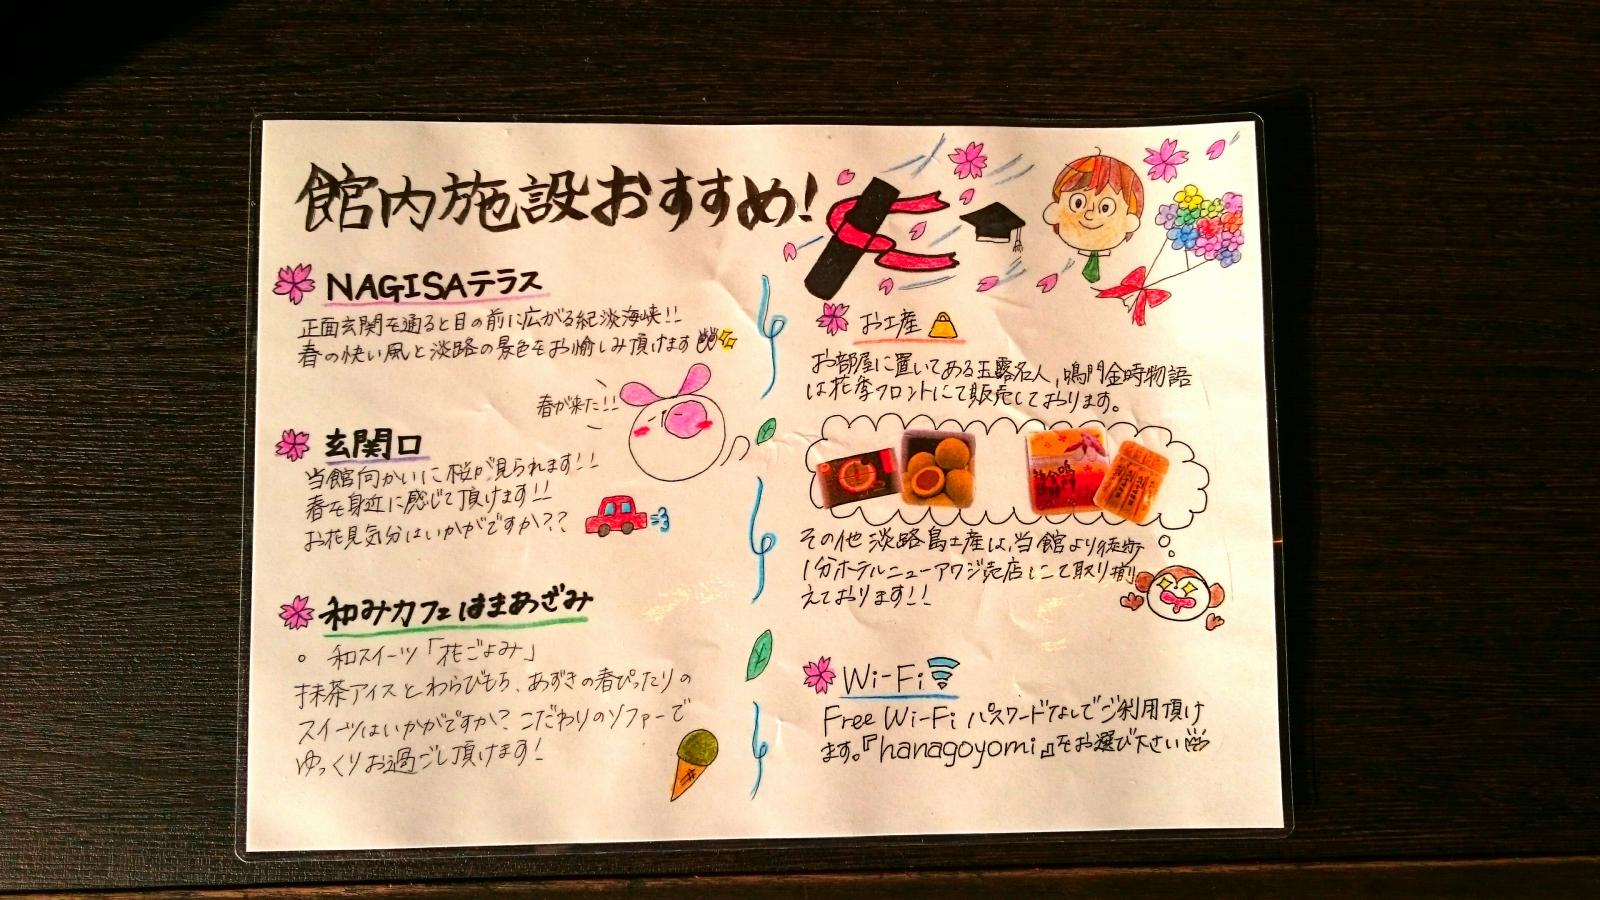 館内施設おすすめ!
NAGISAテラス
正面玄関を通ると目の前に広がる紀淡海峡!!
春の快い風と淡路の景色をお愉しみ頂けます
春が来た!!
玄関口
当館向かいに桜が見られます!!
春を身近に感じて頂けます!!
お花見気分はいかがですか??
和みカフェはまあざみ
。和スイーツ「花ごよみ」
抹茶アイスとわらびもち、あずきの春ぴったりの
スイーツはいかがですか?こだわりのソファーで
ゆっくりお過ごし頂けます!
お土産
お部屋に置いてある玉露名人,鳴門金時物語
は花季フロントにて販売しております。
その他 淡路島土産は,当館より徒歩
1分ホテルニューアワジ売店にて取り揃
えております!!
Wi-Fi
Free Wi-Fi パスワードなしでご利用頂け
ます。『hanagoyomi』をお選び下さい